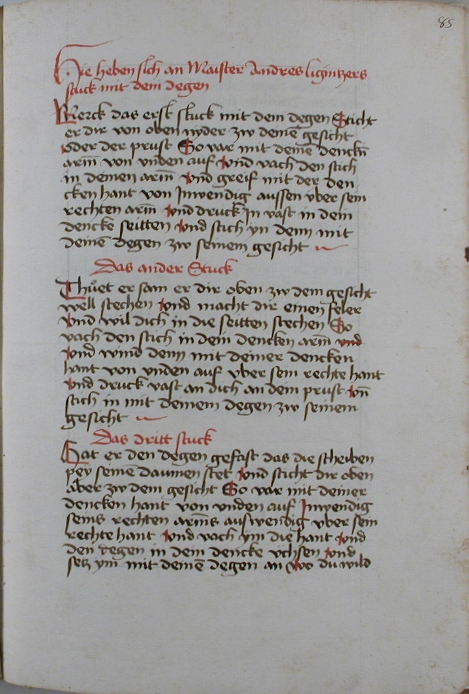 85
Hie heben sich an Maister Andres ligintzers
stuck mit dem degen
Merck das erst stuck mit dem degen Sticht
er dir von oben nyder zw deinē gesicht
oder der prust So var mit deinē dencken
arm von vnden auf vnd vach den stich
in deinen arm vnd greif mit der den
cken hant von Inwendig aussen vber sein
rechten arm vnd druck In vast in dein
dencke seitten vnd stich yn denn mit
deinē degen zw seinem gesicht
Das ander Stuck
Thuet er sam er dir oben zw dem gesicht
well stechen vnd macht dir einen feler
vnd wil dich in die seitten stechen So
vach den stich in dein dencken arm vnd
vnd wind denn mit deiner dencken
hant von vnden auf vber sein rechte hant
vnd druck vast an dich an dein prust vn̄
stich in mit deinem degen zw seinem
gesicht
Das dritt stuck
Hat er den degen gefast das die scheiben
pey seinē daumen stet vnd sticht dir oben
aber zw dem gesicht So var mit deiner
dencken hant von vnden auf Inwendig
seins rechten arms auswendig vber sein
rechte hant vnd vach ym die hant vnd
den degen in dein dencke vchsen vnd
setz ym mit deinē degen an wo du wild